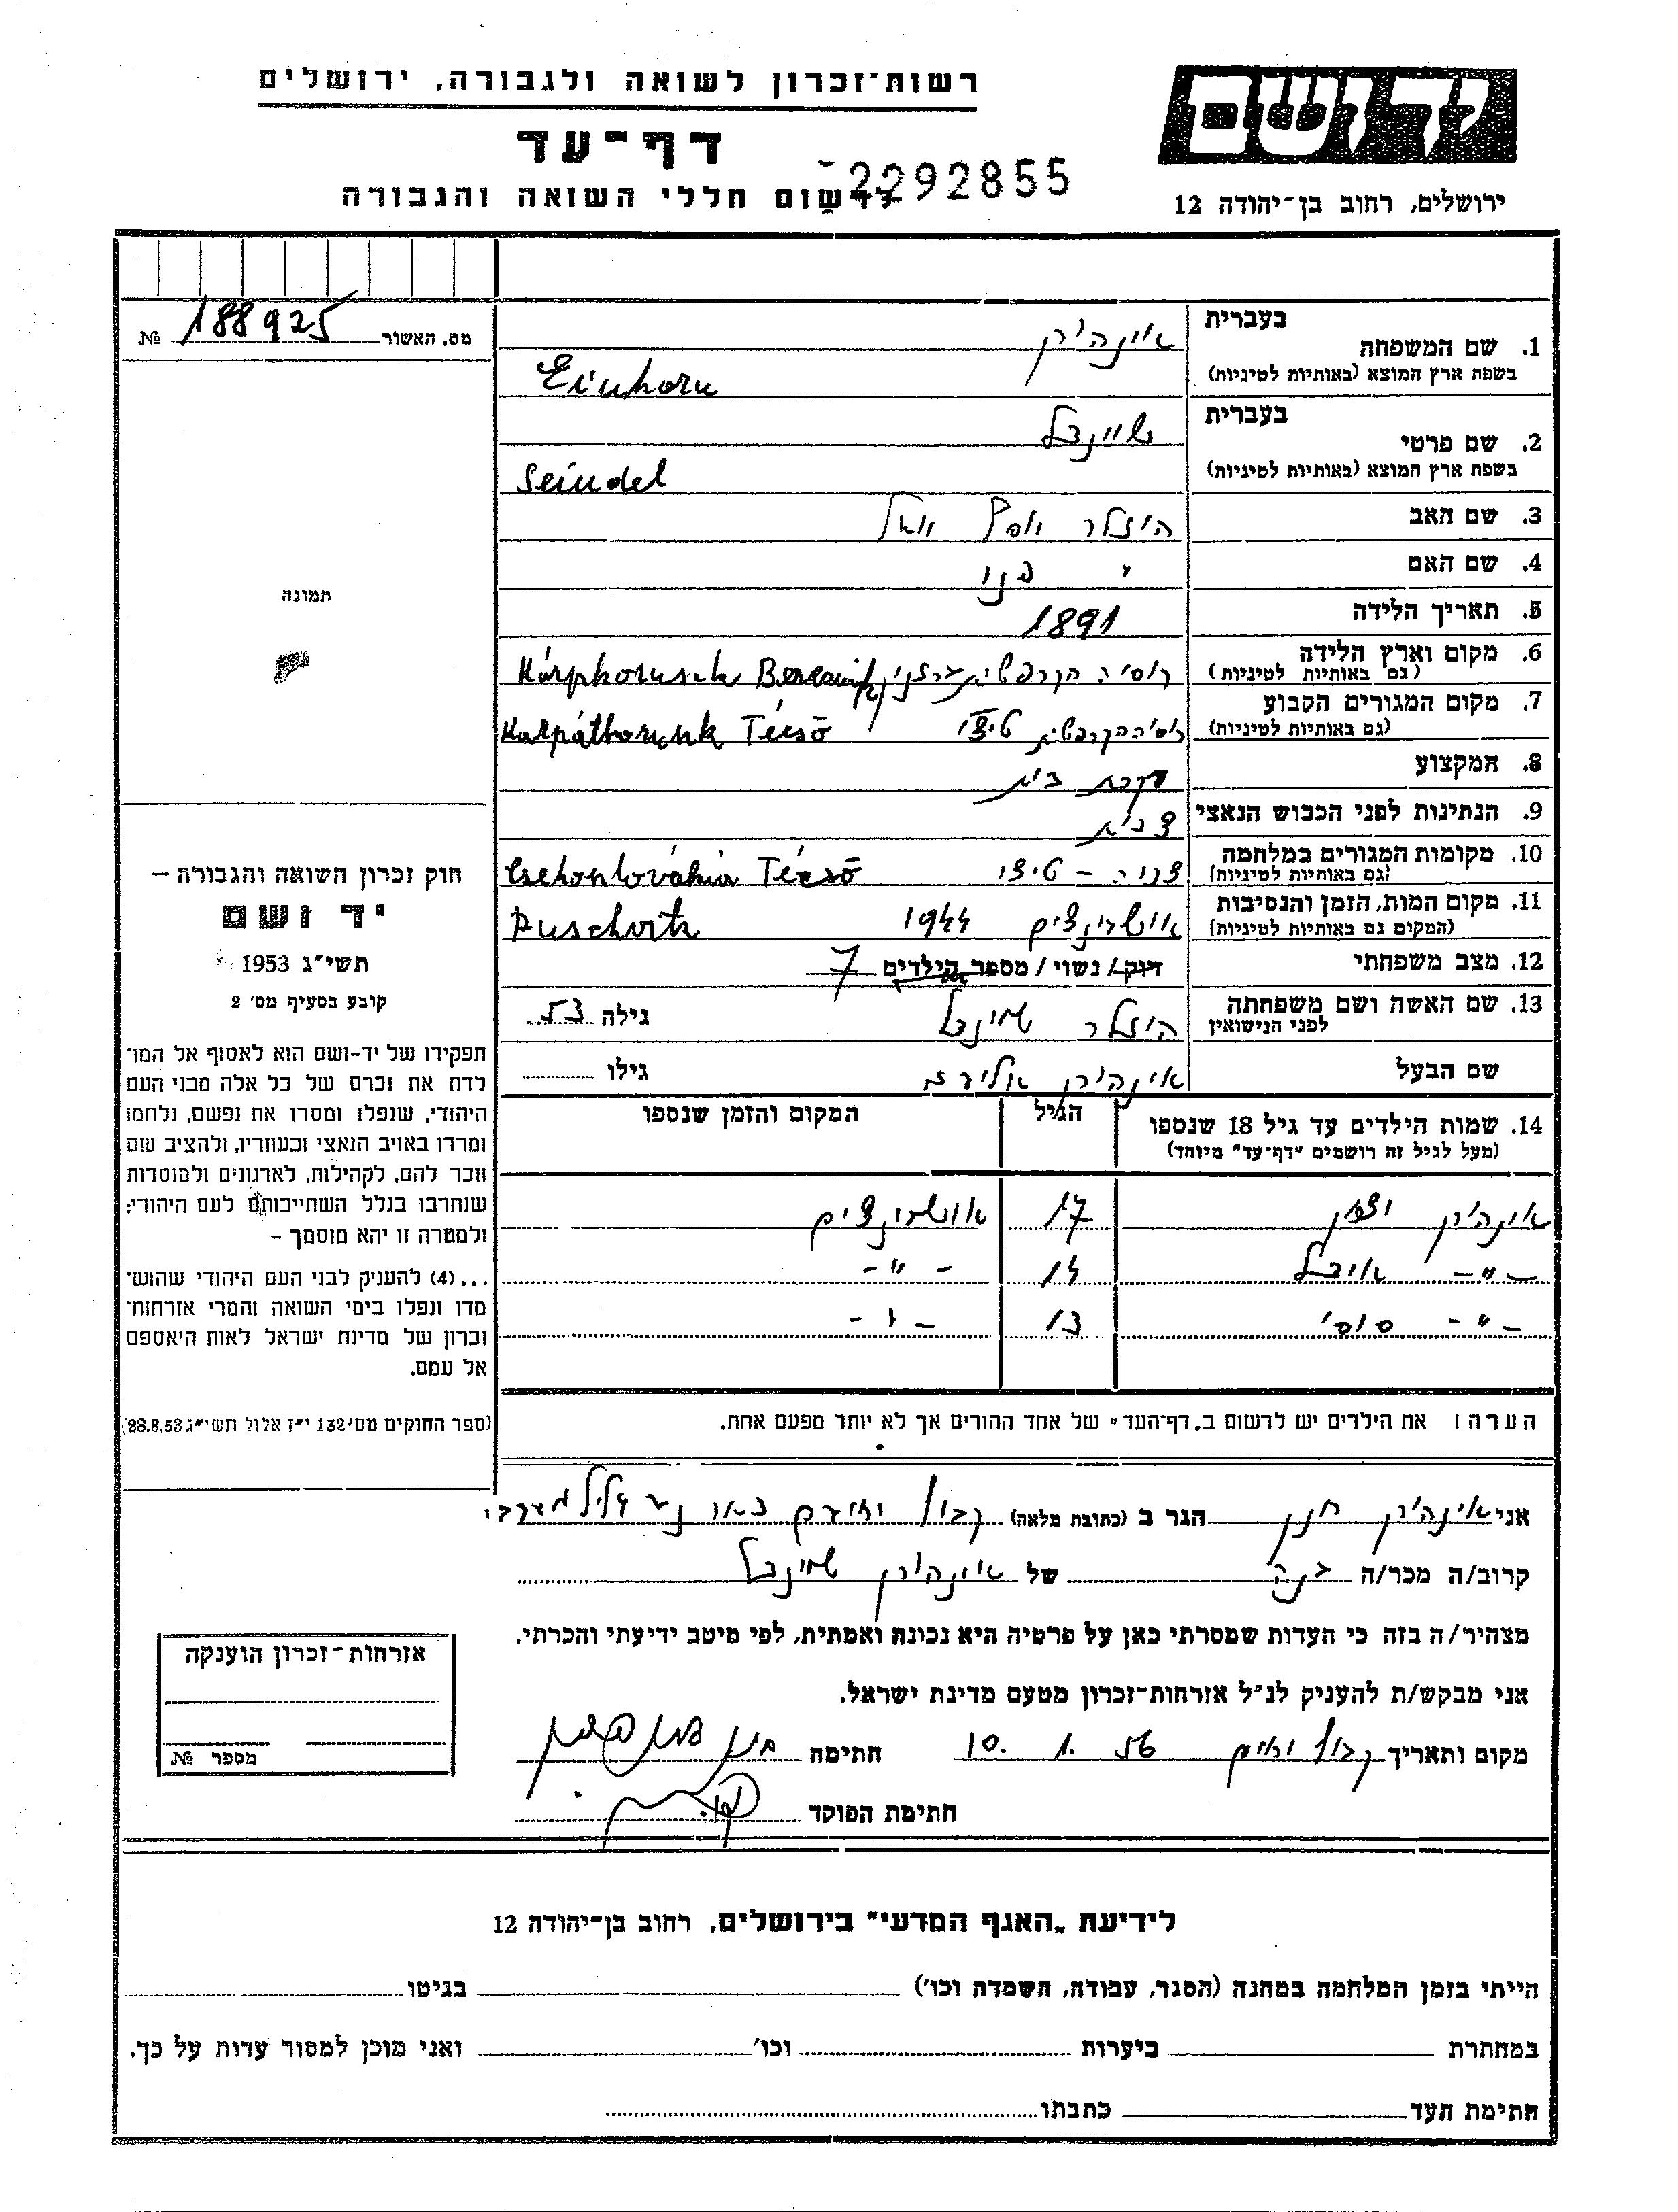 רשות־זכרון לשואה ולגבורה, ירושלים
יד ושם
דף־עד
2292855
לרשום חללי השואה והגבורה
ירושלים, רחוב בן־יהודה 12
מס. האשור 188925 №
בעברית
1. שם המשפחה אינהורן
בשפת ארץ המוצא (באותיות לטיניות) Einhorn
בעברית
2. שם פרטי שיינדל
בשפת ארץ המוצא (באותיות לטיניות) Seindel
3. שם האב
4. שם האם
5. תאריך הלידה 1891
6. מקום וארץ הלידה
(גם באותיות לטיניות)
7. מקום המגורים הקבוע טיצי Técső
(גם באותיות לטיניות)
8. המקצוע עקרת בית
9. הנתינות לפני הכבוש הנאצי צכית
10. מקומות המגורים במלחמה צכיה – טיצי Técső
(גם באותיות לטיניות)
11. מקום המות, הזמן והנסיבות אושוינצים 1944
(המקום גם באותיות לטיניות)
12. מצב משפחתי רווק/ נשוי/ מספר הילדים 7
13. שם האשה ושם משפחתה שיינדל גילה 53
לפני הנישואין
שם הבעל אינהורן גילו
תמונה
חוק זכרון השואה והגבורה –
יד ושם
תשי״ג 1953
קובע בסעיף מס׳ 2
תפקידו של יד-ושם הוא לאסוף אל המו־
לדת את זכרם של כל אלה מבני העם
היהודי, שנפלו ומסרו את נפשם, נלחמו
ומרדו באויב הנאצי ובעוזריו, ולהציב שם
וזכר להם, לקהילות, לארגונים ולמוסדות
שנחרבו בגלל השתייכותם לעם היהודי;
ולמטרה זו יהא מוסמך –
...(4) להעניק לבני העם היהודי שהוש־
מדו ונפלו בימי השואה והמרי אזרחות־
זכרון של מדינת ישראל לאות היאספם
אל עמם.
(ספר החוקים מס׳ 132 י״ז אלול תשי״ג 28.8.53)
14. שמות הילדים עד גיל 18 שנספו הגיל המקום והזמן שנספו
(מעל לגיל זה רושמים "דף־עד" מיוחד)
אינהורן 17 אושוינצים
–״– 14 –״–
–״– 13 –״–
הערה: את הילדים יש לרשום ב„דף־העד" של אחד ההורים אך לא יותר מפעם אחת.
אני אינהורן חנן הגר ב (כתובת מלאה)
קרוב/ה מכר/ה בנה של אינהורן שיינדל
מצהיר/ה בזה כי העדות שמסרתי כאן על פרטיה היא נכונה ואמתית, לפי מיטב ידיעתי והכרתי.
אני מבקש/ת להעניק לנ״ל אזרחות־זכרון מטעם מדינת ישראל.
מקום ותאריך 10. 1. 56 חתימה
חתימת הפוקד
אזרחות־זכרון הוענקה
מספר №
לידיעת „האגף המדעי" בירושלים, רחוב בן־יהודה 12
הייתי בזמן המלחמה במחנה (הסגר, עבודה, השמדה וכו׳) בגיטו
במחתרת ביערות וכו׳ ואני מוכן למסור עדות על כך.
חתימת העד כתבתו